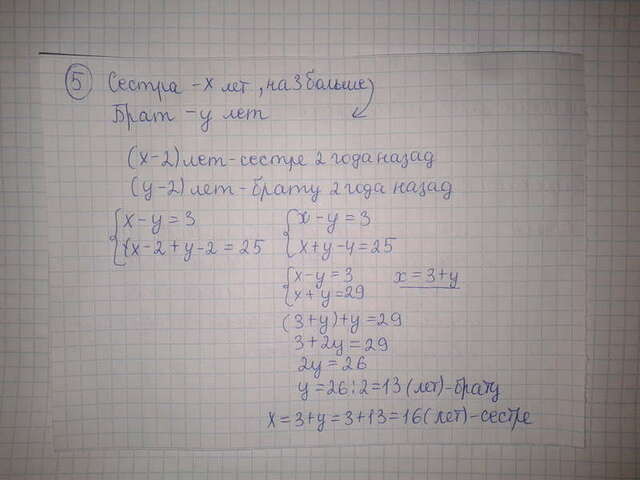 5 Сестра - x лет, на 3 больше
Брат - y лет
(x-2) лет - сестре 2 года назад
(y-2) лет - брату 2 года назад
{x-y=3
{x-2+y-2=25
{x-y=3
{x+y-4=25
{x-y=3
{x+y=29
x=3+y
(3+y)+y=29
3+2y=29
2y=26
y=26:2=13 (лет) - брату
x=3+y=3+13=16 (лет) - сестре